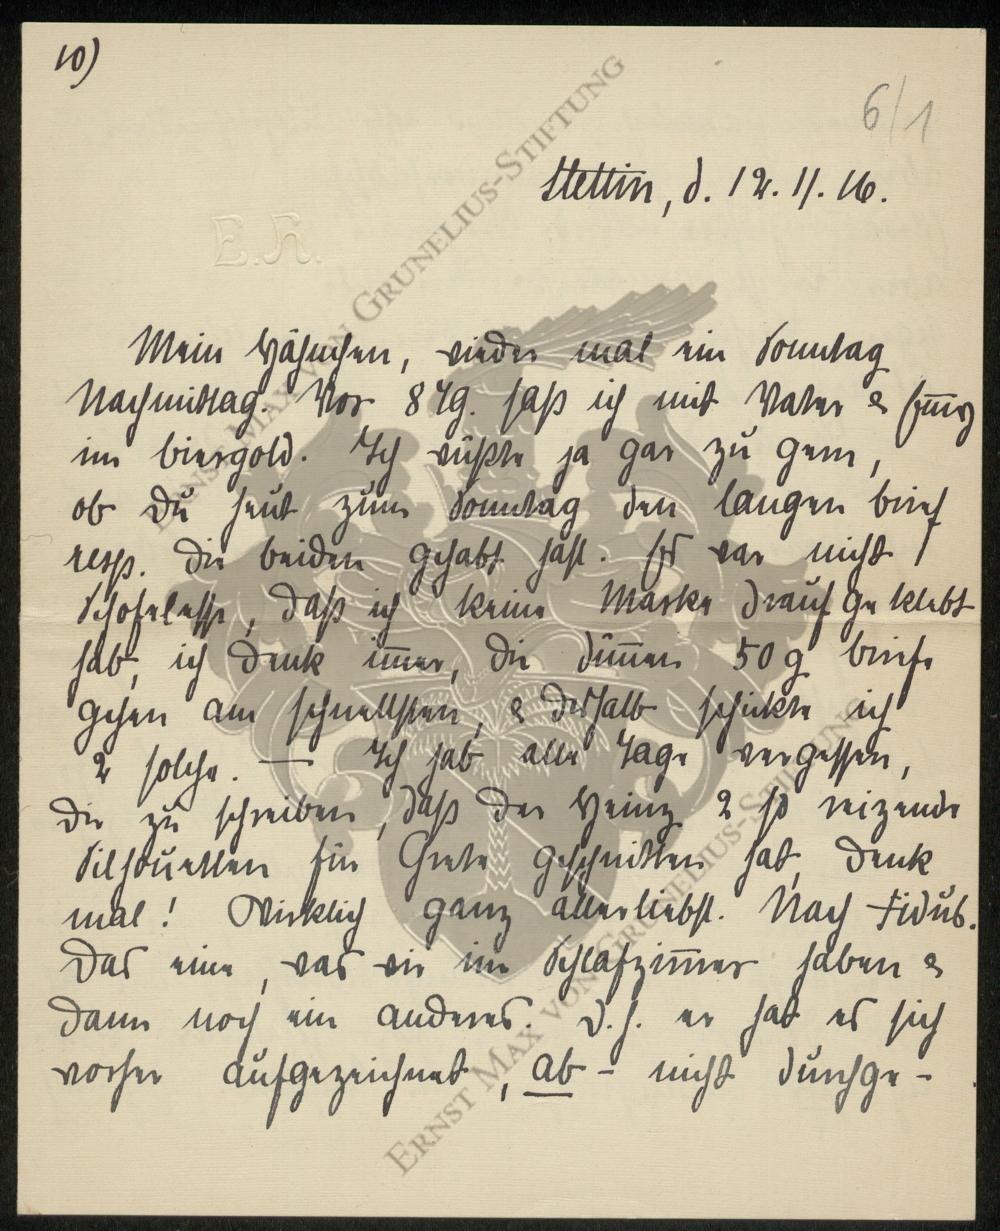 10)
6/1
Stettin, d. 12. 11. 16.
E. H.
Mein Hähnchen, wieder mal ein Sonntag
Nachmittag. Vor 8 Tg. saß ich mit Vater &
im Biergold. Ich wüßte ja gar zu gern,
ob Du heut zum Sonntag den langen Brief
resp. die beiden gehabt hast. Es war nicht
Schofelesse, daß ich keine Marke drauf geklebt
hab, ich denk im̅er, die dün̅en 50 g Briefe
gehen am schnellsten, & deshalb schickte ich
2 solche. — Ich hab alle Tage vergessen,
Dir zu schreiben, daß der Heinz 2 so reizende
Silhouetten für Grete geschnitten hat, denk
mal! Wirklich ganz allerliebst. Nach Fidus.
Das eine, was wir im Schlafzim̅er haben &
dann noch ein anderes. D.h. er hat es sich
vorher aufgezeichnet, ab- nicht durchge-
ERNST MAX VON GRUNELIUS-STIFTUNG
ERNST MAX VON GRUNELIUS-STIFTUNG